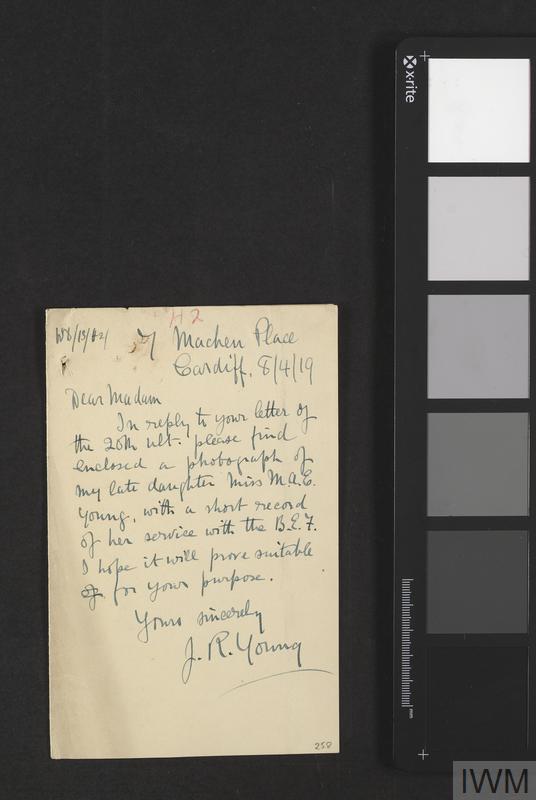 H2
7 Machen Place
Cardiff, 8/4/19
Dear Madam
In reply to your letter of
the 20th ult. please find
enclosed a photograph of
my late daughter Miss M.A.E.
Young, with a short record
of her service with the B.E.F.
I hope it will prove suitable
for your purpose.
Yours sincerely
J. R. Young
258
x-rite
mm
IWM